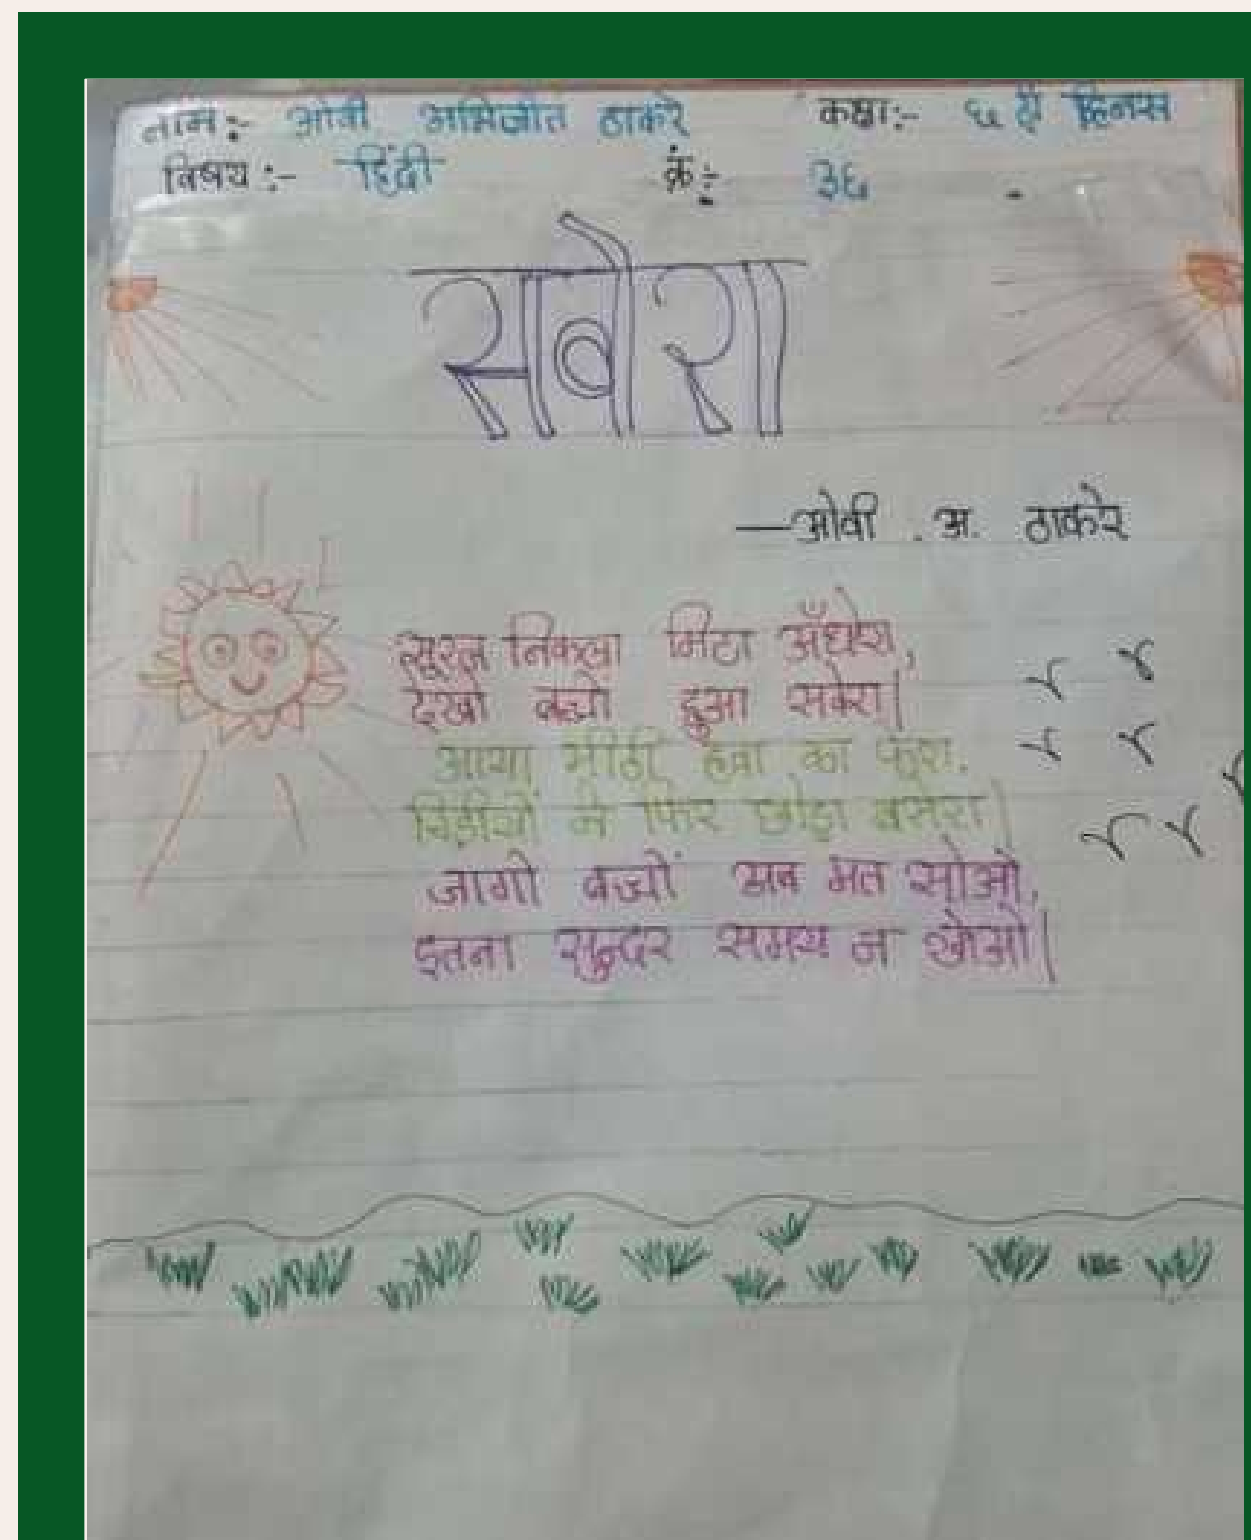 नाम:- ओवी अभिजीत ठाकरे कक्षा:- ६ वी
विषय:- हिंदी क्रं:- ३६
सवेरा
—ओवी . अ. ठाकरे
सूरज निकला मिटा अँधेरा,
देखो बच्चो हुआ सवेरा|
आया मीठी हवा का फेरा,
चिड़ीयों ने फिर छोड़ा बसेरा|
जागो बच्चों अब मत सोओ,
इतना सुन्दर समय न खोओ|